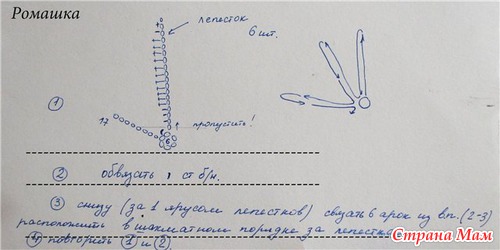 Ромашка
лепесток
6 шт.
① 17 6 пропустить!
② обвязать ст б/н.
③ снизу (за 1 ярусом лепестков) связать 6 арок из в.п. (2-3)
расположить в шахматном порядке за лепестками
④ повторить ① и ②
Страна Мам